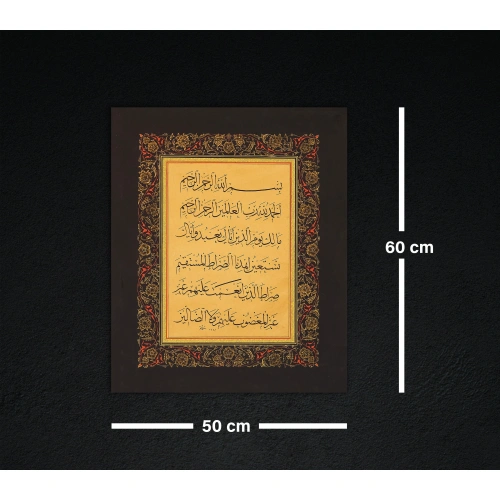 بسم الله الرحمن الرحيم
الحمد لله رب العالمين الرحمن الرحيم
مالك يوم الدين اياك نعبد واياك
نستعين اهدنا الصراط المستقيم
صراط الذين انعمت عليهم غير
غير المغضوب عليهم ولا الضالين
60 cm
50 cm